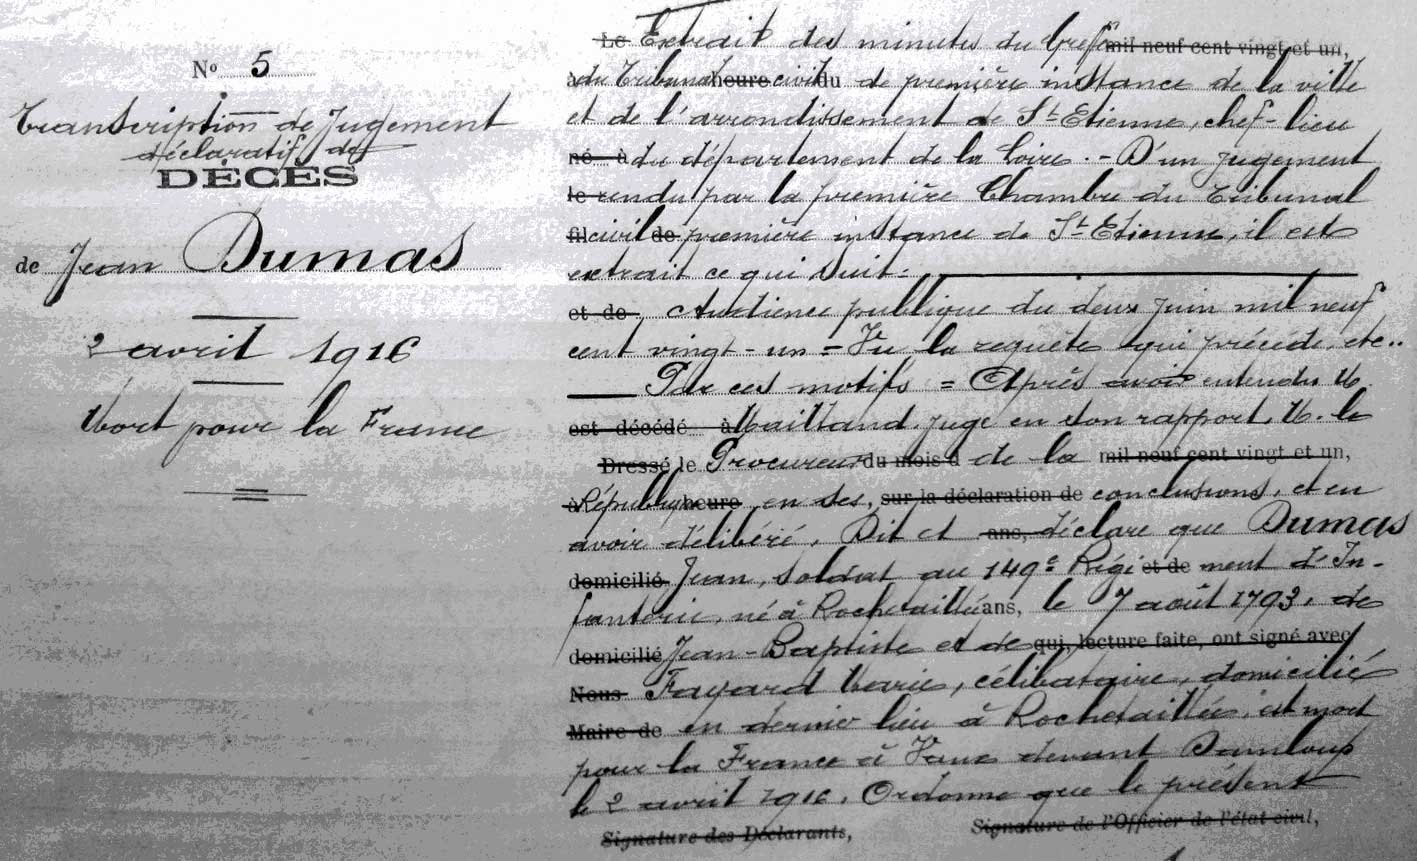 Nº 5
Transcription de Jugement
déclaratif de
DÉCÈS
de Jean Dumas
2 avril 1916
Mort pour la France
Le Extrait des minutes du Greffe mil neuf cent vingt et un,
à du Tribunal heure civil du de première instance de la ville
et de l'arrondissement de St Etienne, chef-lieu
né à du département de la Loire. - D'un jugement
le rendu par la première Chambre du Tribunal
fil civil de première instance de St Etienne, il est
extrait ce qui suit :
et de Audience publique du deux juin mil neuf
cent vingt-un = Vu la requête qui précède, etc..
Par ces motifs = Après avoir entendu M.
est décédé à Mailland, juge en son rapport, M. le
Dressé le Procureur du mois d de la mil neuf cent vingt et un,
à République heure, en ses, sur la déclaration de conclusions, et en
avoir délibéré, Dit et ans, déclare que Dumas
domicilié Jean, soldat au 149e Régi et de ment d'In-
fanterie, né à Rochetaillée ans, le 7 août 1793, de
domicilié Jean-Baptiste et de qui, lecture faite, ont signé avec
Nous Fayard Marie, célibataire, domicilié
Maire de en dernier lieu à Rochetaillée, est mort
pour la France à Vaux devant Damloup
le 2 avril 1916. Ordonne que le présent
Signature des Déclarants,
Signature de l'Officier de l'état civil,